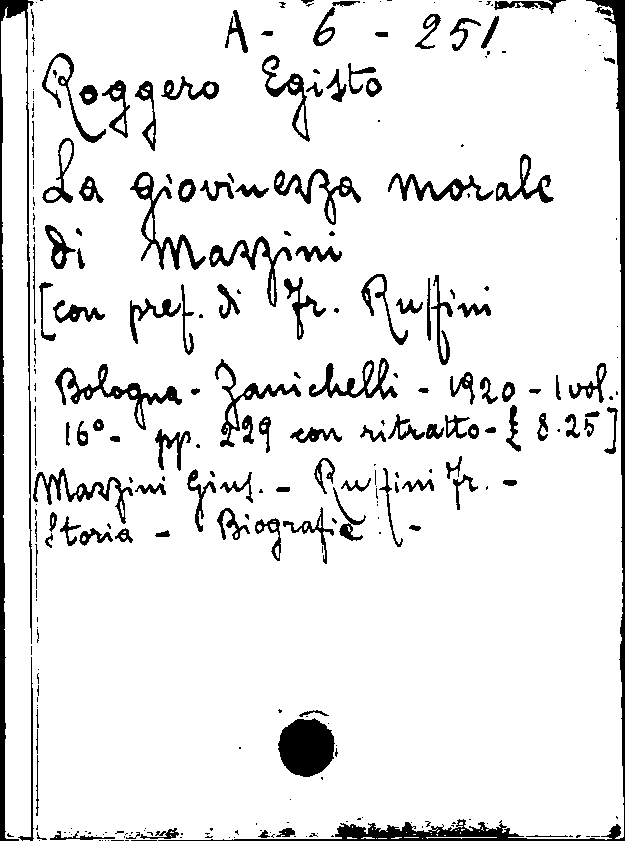 A - 6 - 251
Roggero Egisto
La giovinezza morale
di Mazzini
[con pref. di Fr. Ruffini
Bologna - Zanichelli - 1920 - 1 vol.
16° - pp. 229 con ritratto - £ 8.25]
Mazzini Gius. - Ruffini Fr. -
Storia - Biografie -